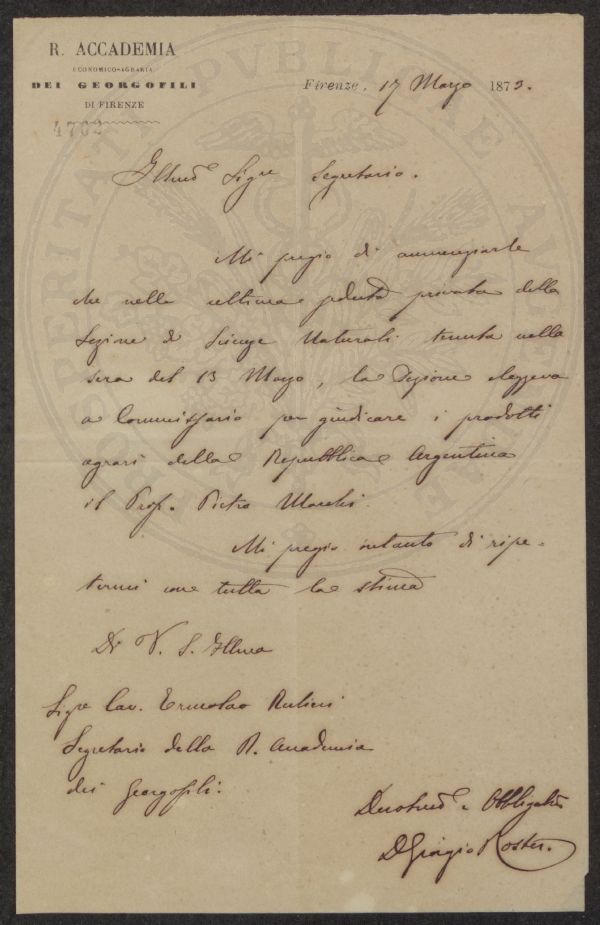 R. ACCADEMIA
ECONOMICO-AGRARIA
DEI GEORGOFILI
DI FIRENZE
4702
Firenze, 17 Marzo 1873.
Illmo Sigre Segretario.
Mi pregio di annunziarle
che nella ultima seduta privata della
Sezione di Scienze Naturali tenuta nella
sera del 13 Marzo, la Sezione eleggeva
a Commissario per giudicare i prodotti
agrari della Repubblica Argentina
il Prof. Pietro Marchi.
Mi pregio intanto di ripe-
termi con tutta la stima
Di V. S. Illma
Sigre Cav. Ermolao Rubieri
Segretario della R. Accademia
dei Georgofili.
Devotmo e Obbligato
D Giorgio Roster.
PROSPERITATI PVBLICAE AVGENDAE